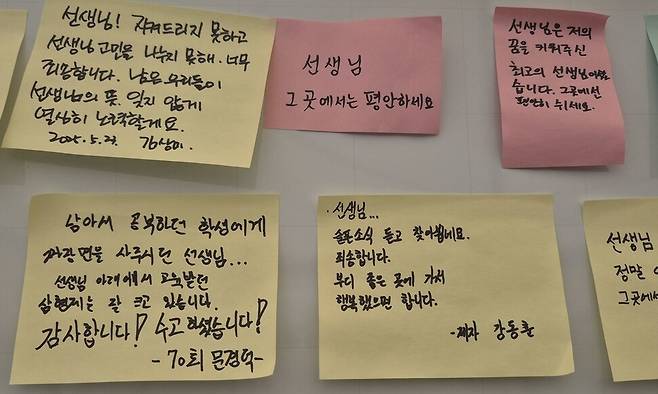 선생님! 지켜드리지 못하고
선생님 고민을 나누지 못해. 너무
죄송합니다. 남은 우리들이
선생님의 뜻. 잊지 않게
열심히 노력할게요.
2025.5.23. 김상미.
선생님
그곳에서는 평안하세요
선생님은 저의
꿈을 키워주신
최고의 선생님이셨
습니다. 그곳에선
편안히 쉬세요.
남아서 공부하던 학생에게
짜장면을 사주시던 선생님...
선생님 아래에서 교육받던
삼형제는 잘 크고 있습니다.
감사합니다! 수고하셨습니다!
-70회 문경덕-
·선생님...
슬픈소식 듣고 찾아뵙네요.
죄송합니다.
부디 좋은 곳에 가셔
행복했으면 합니다.
-제자 강동훈
선생님
정말
그곳에서